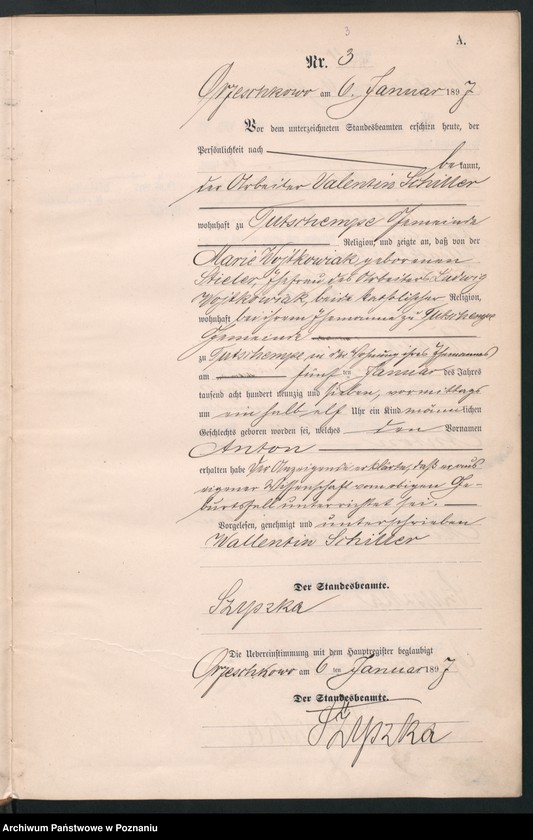 3
A.
Nr. 3
Orzeschkowo am 6. Januar 1897
Vor dem unterzeichneten Standesbeamten erschien heute, der
Persönlichkeit nach bekannt,
der Arbeiter Valentin Schiller
wohnhaft zu Tutschempe Gemeinde
Religion, und zeigte an, daß von der
Marie Wojtkowiak geborenen
Stieler, Ehefrau des Arbeiters Ludwig
Wojtkowiak, beide katholischer Religion,
wohnhaft bei ihrem Ehemanne zu Tutschempe
Gemeinde
zu Tutschempe in der Wohnung ihres Ehemannes
am fünften Januar des Jahres
tausend acht hundert neunzig und sieben, vormittags
um ein halb elf Uhr ein Kind männlichen
Geschlechts geboren worden sei, welches den Vornamen
Anton
erhalten habe Der Anzeigende erklärte, daß er aus
eigener Wissenschaft vom obigen Ge-
burtsfall unterrichtet sei.
Vorgelesen, genehmigt und unterschrieben
Wallentin Schiller
Der Standesbeamte.
Szypzka
Die Uebereinstimmung mit dem Hauptregister beglaubigt
Orzeschkowo am 6 ten Januar 1897
Der Standesbeamte.
Szypzka
Archiwum Państwowe w Poznaniu